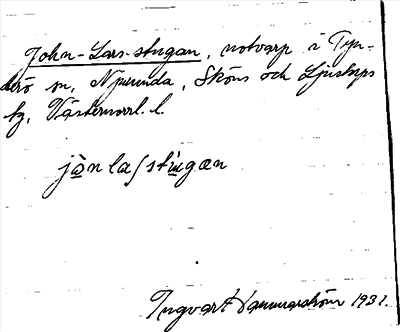 John-Lars-stugan, notvarp i Tyn-
derö sn, Njurunda, Sköns och Ljustorps
tg, Västernorrl. l.
jòn laʃ stúgæn
Ingvart Hammarström 1931.